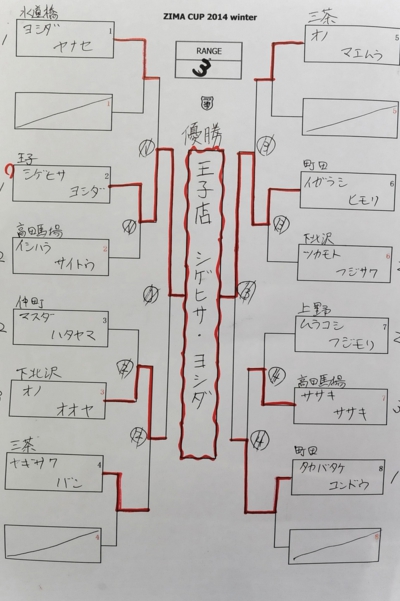 ZIMA CUP 2014 winter
RANGE
3
優勝
王子店 シゲヒサ・ヨシダ
水道橋
ヨシダ
ヤナセ
1
1
王子
シゲヒサ
ヨシダ
2
高田馬場
イシハラ
サイトウ
2
仲町
マスダ
ハタヤマ
3
下北沢
オノ
オオヤ
3
三茶
ヤギサワ
バン
4
4
三茶
オノ
マエムラ
5
5
町田
イガラシ
ヒモリ
6
下北沢
ツカモト
フジサワ
6
上野
ムラコシ
フジモリ
7
高田馬場
ササキ
ササキ
7
町田
タカバタケ
コンドウ
8
8